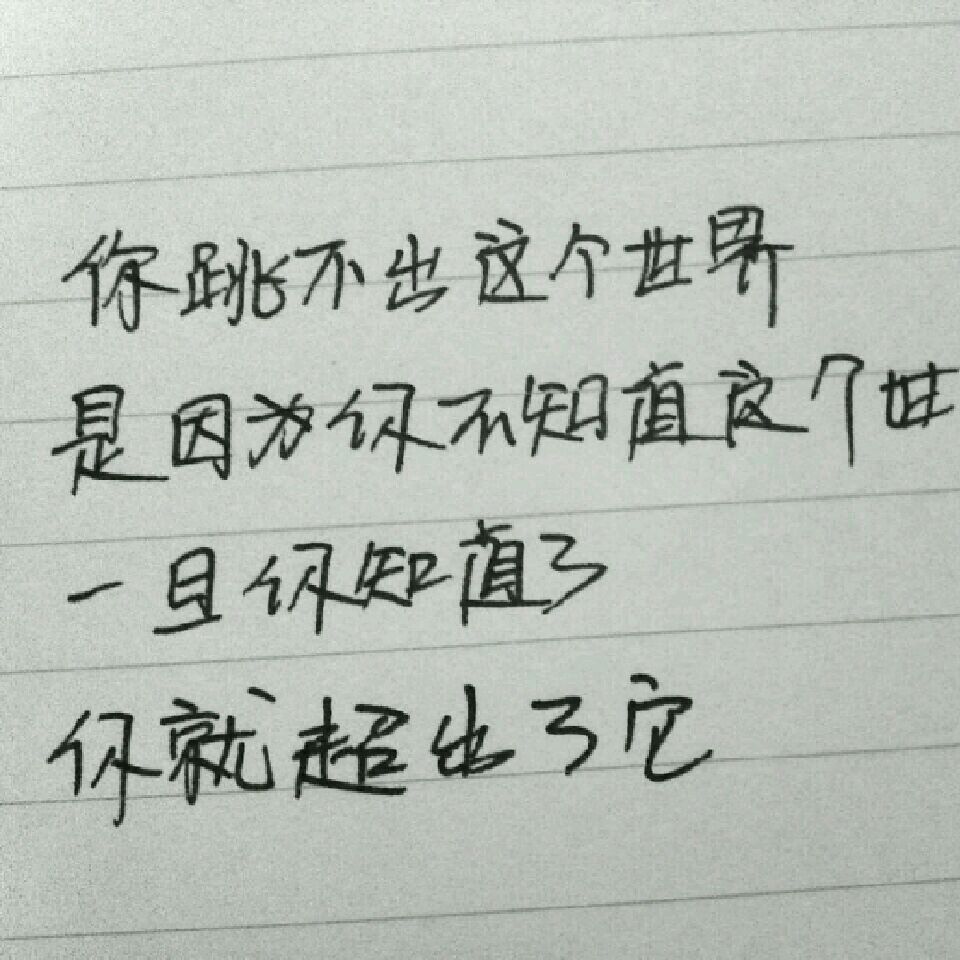 你跳不出这个世界
是因为你不知值这个世
一旦你知值了
你就超出了它